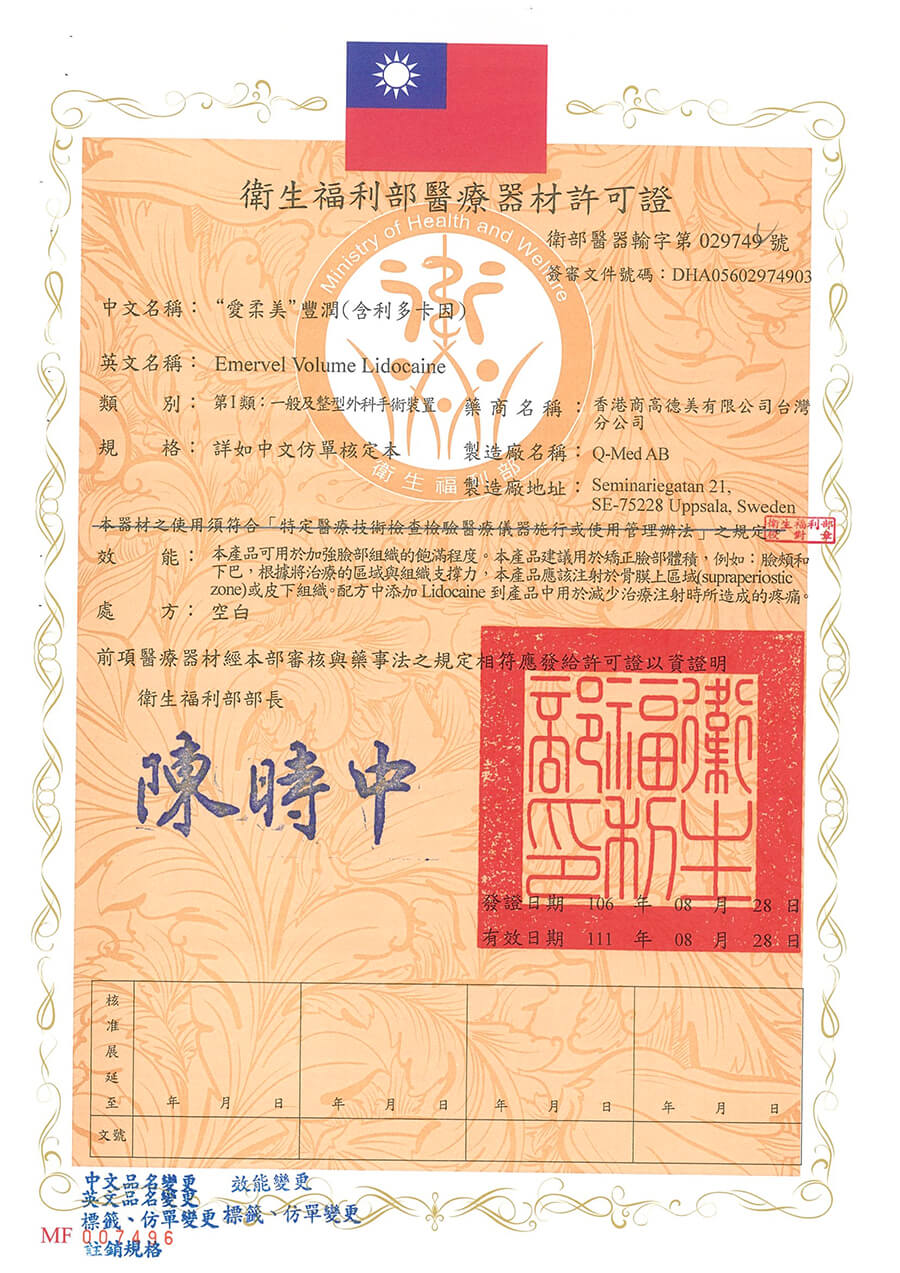 衛生福利部醫療器材許可證
Ministry of Health and Welfare
衛部醫器輸字第 029749 號
簽審文件號碼：DHA05602974903
中文名稱：“愛柔美”豐潤(含利多卡因)
英文名稱：Emervel Volume Lidocaine
類 別：第I類：一般及整型外科手術裝置 藥商名稱：香港商高德美有限公司台灣
分公司
規 格：詳如中文仿單核定本 製造廠名稱：Q-Med AB
衛生福利部
製造廠地址：Seminariegatan 21,
SE-75228 Uppsala, Sweden
本器材之使用須符合「特定醫療技術檢查檢驗醫療儀器施行或使用管理辦法」之規定。
衛生福利部
校對章
效 能：本產品可用於加強臉部組織的飽滿程度。本產品建議用於矯正臉部體積，例如：臉頰和
下巴，根據將治療的區域與組織支撐力，本產品應該注射於骨膜上區域(supraperiostic
zone)或皮下組織。配方中添加 Lidocaine 到產品中用於減少治療注射時所造成的疼痛。
處 方：空白
前項醫療器材經本部審核與藥事法之規定相符應發給許可證以資證明
衛生福利部部長
陳時中
衛生福利部印
發證日期 106 年 08 月 28 日
有效日期 111 年 08 月 28 日
核准展延至 年 月 日 年 月 日 年 月 日 年 月 日
文號
中文品名變更 效能變更
英文品名變更
標籤、仿單變更 標籤、仿單變更
MF 007496
註銷規格